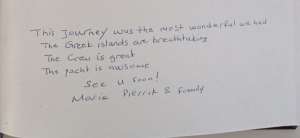 This Journey was the most wonderful we had
The Greek islands are breathtaking
The Crew is great
The yacht is awsome
See u soon!
Marie Pierrick & family